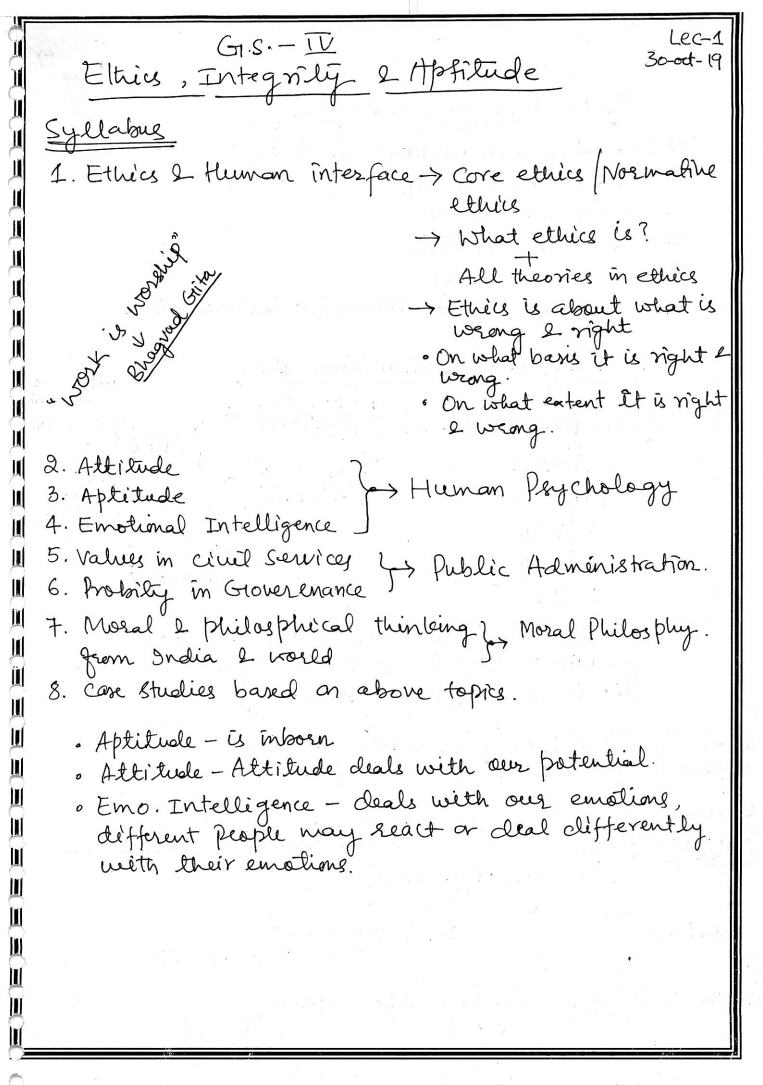 G.S. - IV
Lec-1
30-oct-19
Ethics, Integrity & Aptitude
Syllabus
1. Ethics & Human interface → Core ethics / Normative
ethics
→ What ethics is?
+
All theories in ethics
→ Ethics is about what is
wrong & right
• On what basis it is right &
wrong.
• On what extent it is right
& wrong.
"Work is worship"
↓
Bhagvad Gita
2. Attitude
3. Aptitude
4. Emotional Intelligence
→ Human Psychology
5. Values in civil services
6. Probity in Goverenance
→ Public Administration.
7. Moral & philosphical thinking
from India & world
→ Moral Philosphy.
8. Case studies based on above topics.
• Aptitude - is inborn
• Attitude - Attitude deals with our potential.
• Emo. Intelligence - deals with our emotions,
different people may react or deal differently
with their emotions.